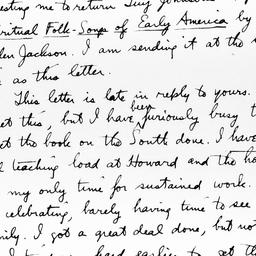 esting me to return Guy Johnson's
iritual Folk-Songs of Early America by
en Jackson. I am sending it at the
as this letter.
This letter is late in reply to yours.
et this, but I have been furiously busy t
t the book on the South done. I have
teaching load at Howard and the ho
my only time for sustained work.
celebrating, barely having time to see
ily. I got a great deal done, but not
hard earlier to get th